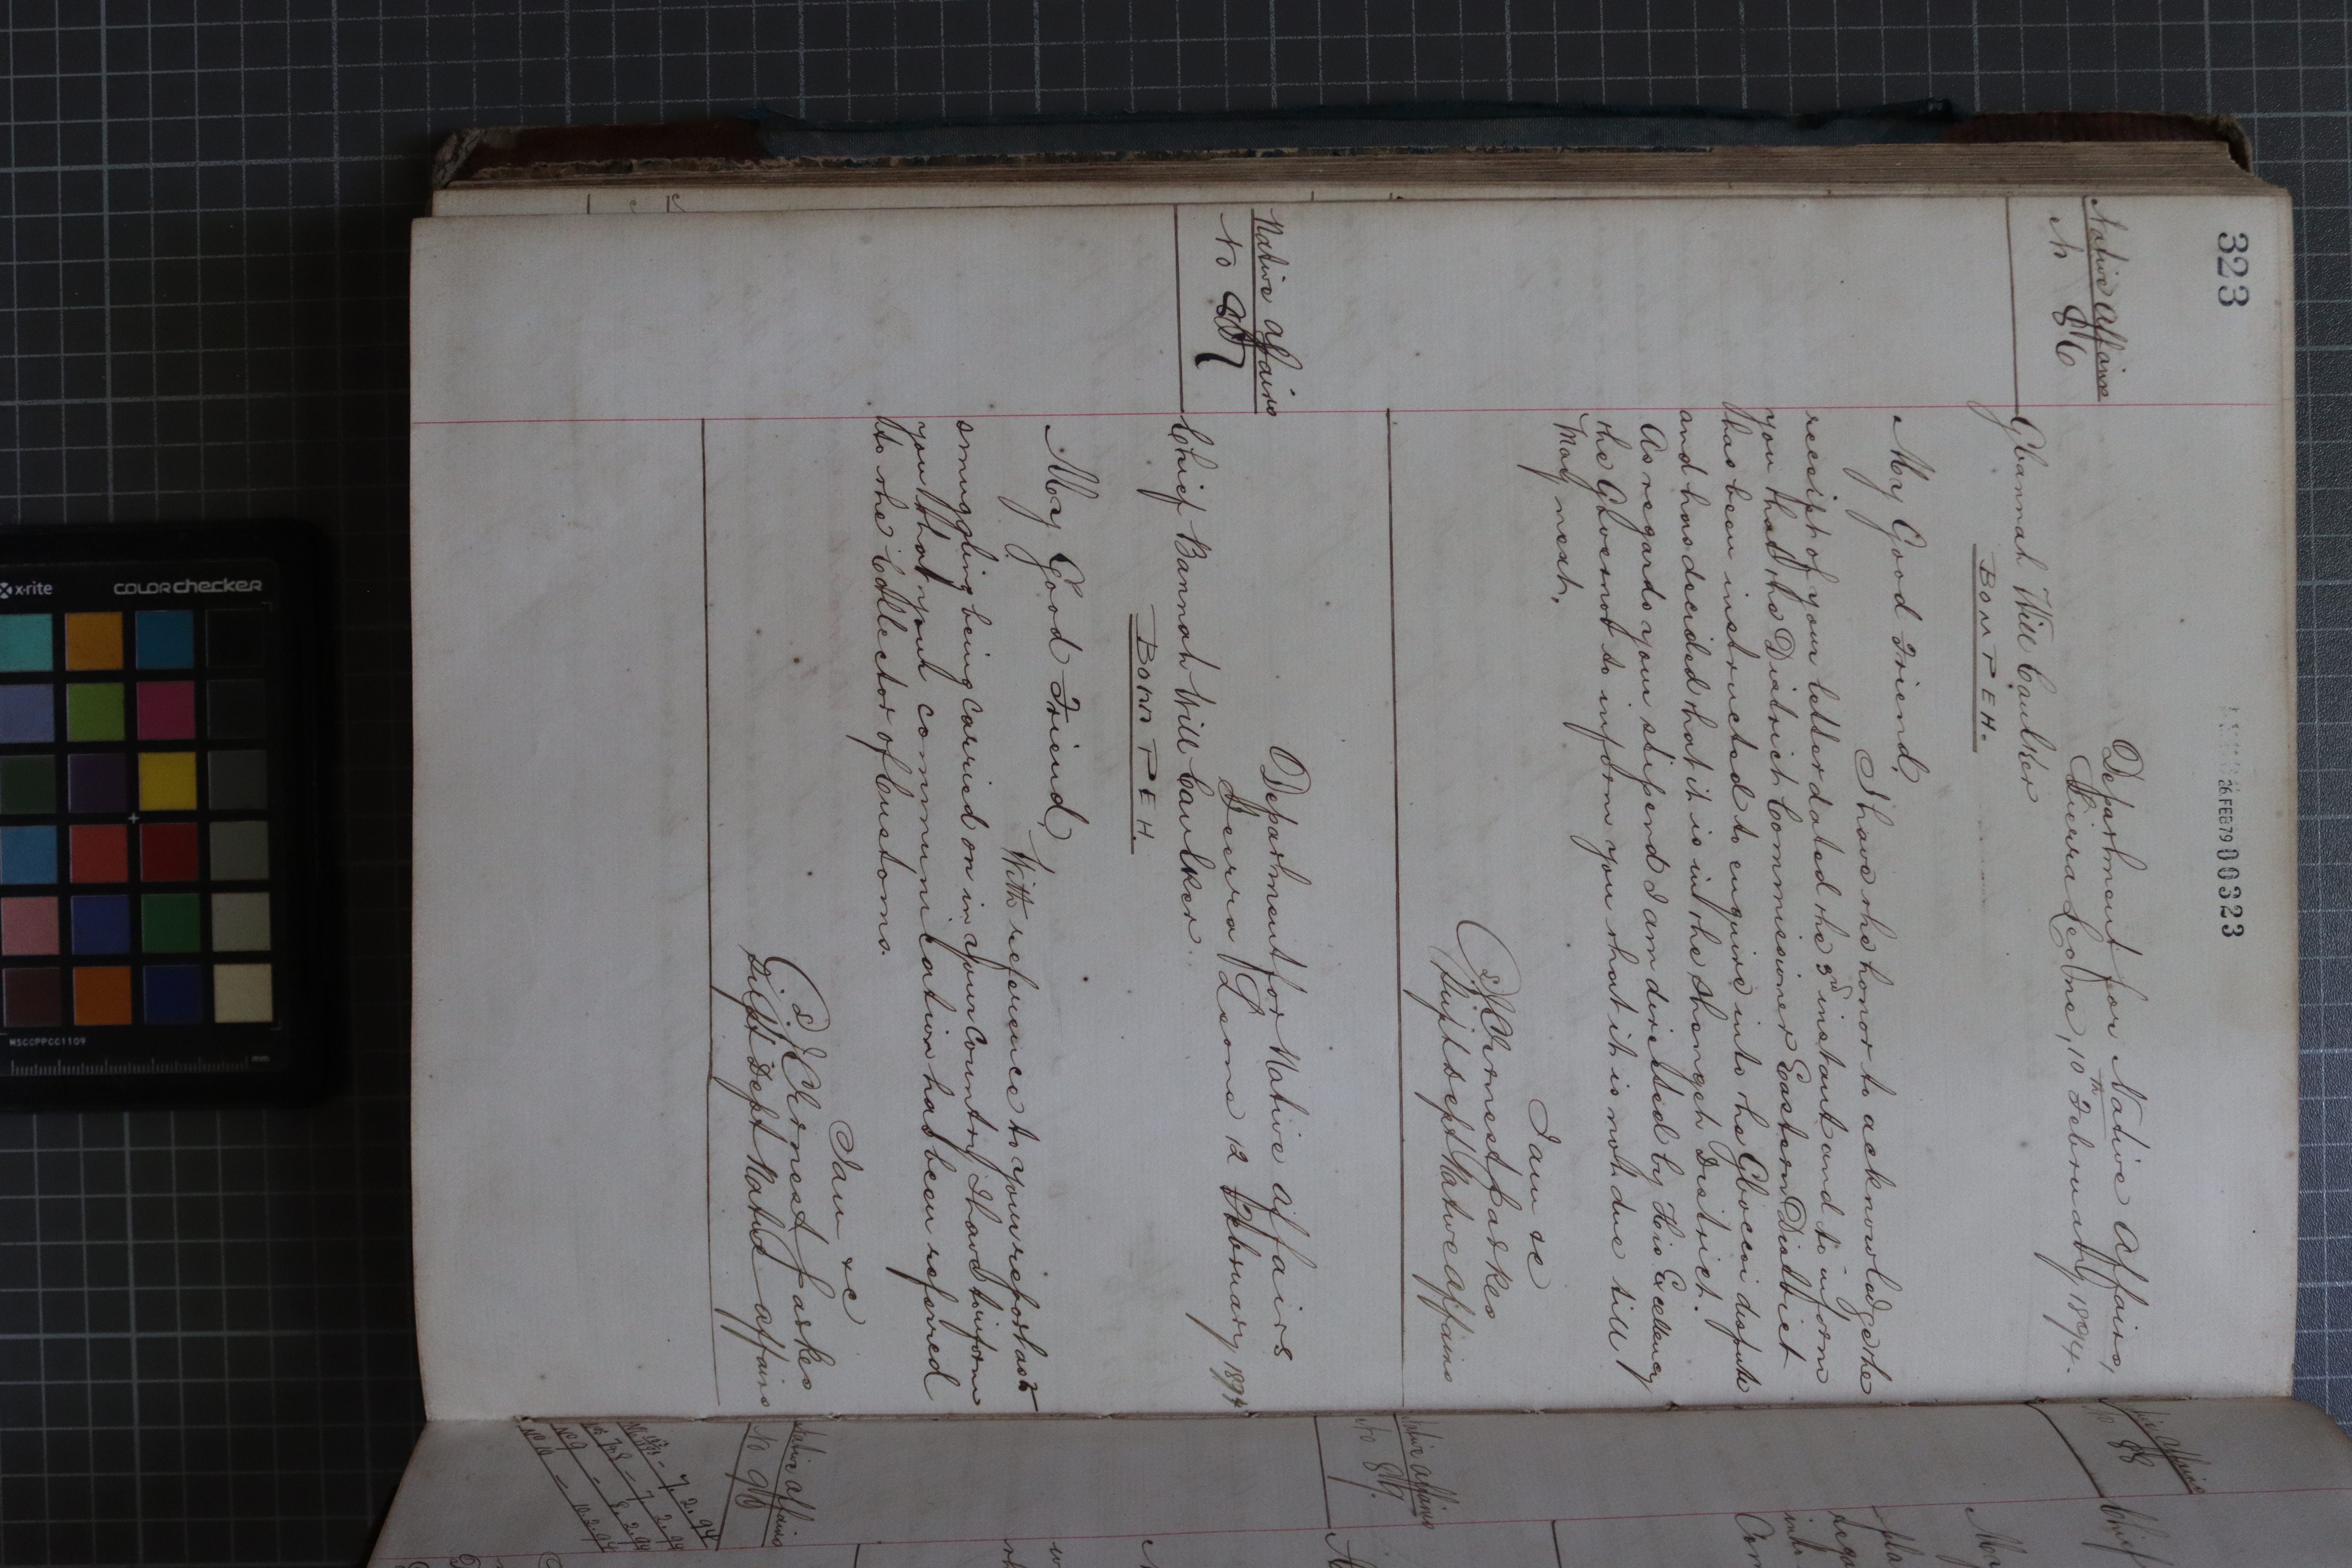 323
26 FEB 79 00323
Native Affairs
No 86
Department for Native Affairs,
Sierra Leone, 10th February 1894.
Gbannah Will Caulker
BOMPEH.
My Good Friend,
I have the honor to acknowledge the
receipt of your letter dated the 3rd instant and to inform
you that the District Commissioner Eastern District
has been instructed to enquire into the Gbocci dispute
and has decided that it is in the Shengeh District.
As regards your stipend I am directed by His Excellency
the Governor to inform you that it is not due till
May next.
I am &c
J. C. Ernest Parkes
Supt Dept Native Affairs
Native Affairs
No 87
Department for Native Affairs
Sierra Leone 12 February 1894
Chief Bannah Will Caulker.
BOMPEH.
My Good Friend,
With reference to your report as to
smuggling being carried on in your Country I have to inform
you that your communication has been referred
to the Collector of Customs.
I am &c
J. C. Ernest Parkes
Supt Dept Native Affairs
Native Affairs
No 88
Chief
Native Affairs
No 89.
Native Affairs
No 90
7.2.94
7.2.94
No 9 - 8.2.94
No 10 - 10.2.94
x-rite
COLORchecker
MSCCPPCC1109
mm